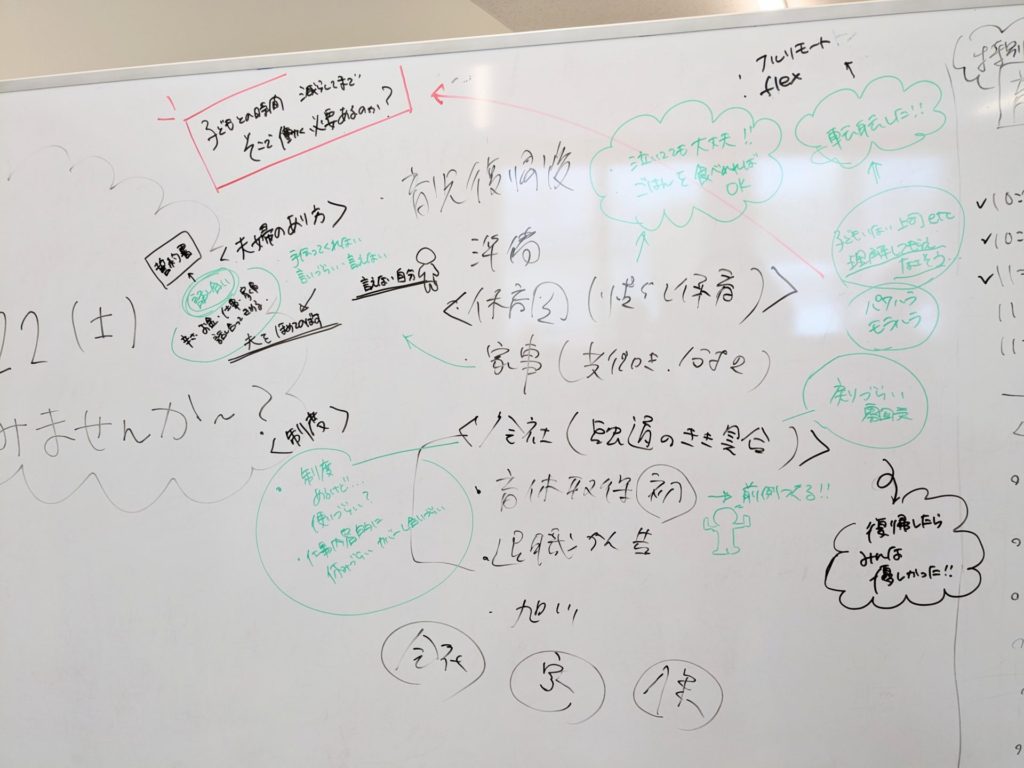 子どもとの時間 減らしてまで
そこで働く必要あるのか？
・フルリモート
・flex
転職した!!
泣いてても大丈夫!!
ごはんを食べれれば
OK
・育児復帰後
準備
<保育園(慣らし保育)>
・家事(
<会社(融通のきき具合)>
・育休取得 初
→前例つくる!!
・退職かん告
・旭川
会社
家
保
<夫婦のあり方>
誓約書
話し合い
・手伝ってくれない
言いづらい・言えない
言えない自分
夫をほめてのばす
子どもいない上司etc
理解してもら
なさそう
パワハラ
モラハラ
戻りづらい
雰囲気
復帰したら
みんな
優しかった!!
<制度>
・制度
あるけど…
使いづらい？
・仕事内容的に
休みづらい
22(土)
みませんか〜？